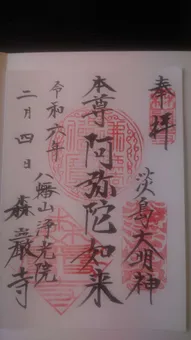 奉拝
淡島大明神
本尊 阿弥陀如来
令和六年
二月四日
八幡山浄光院
森巌寺